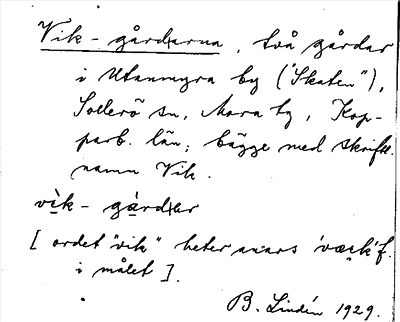 Vik-gårdarna, två gårdar
i Utanmyra by ("Skaten"),
Sollerö sn, Mora tg, Kop-
parb. län; bägge med skriftl.
namn Vik.
vìk-gàrdar
[ordet "vik" heter annars 'væk' f.
i målet].
B. Lindén 1929.